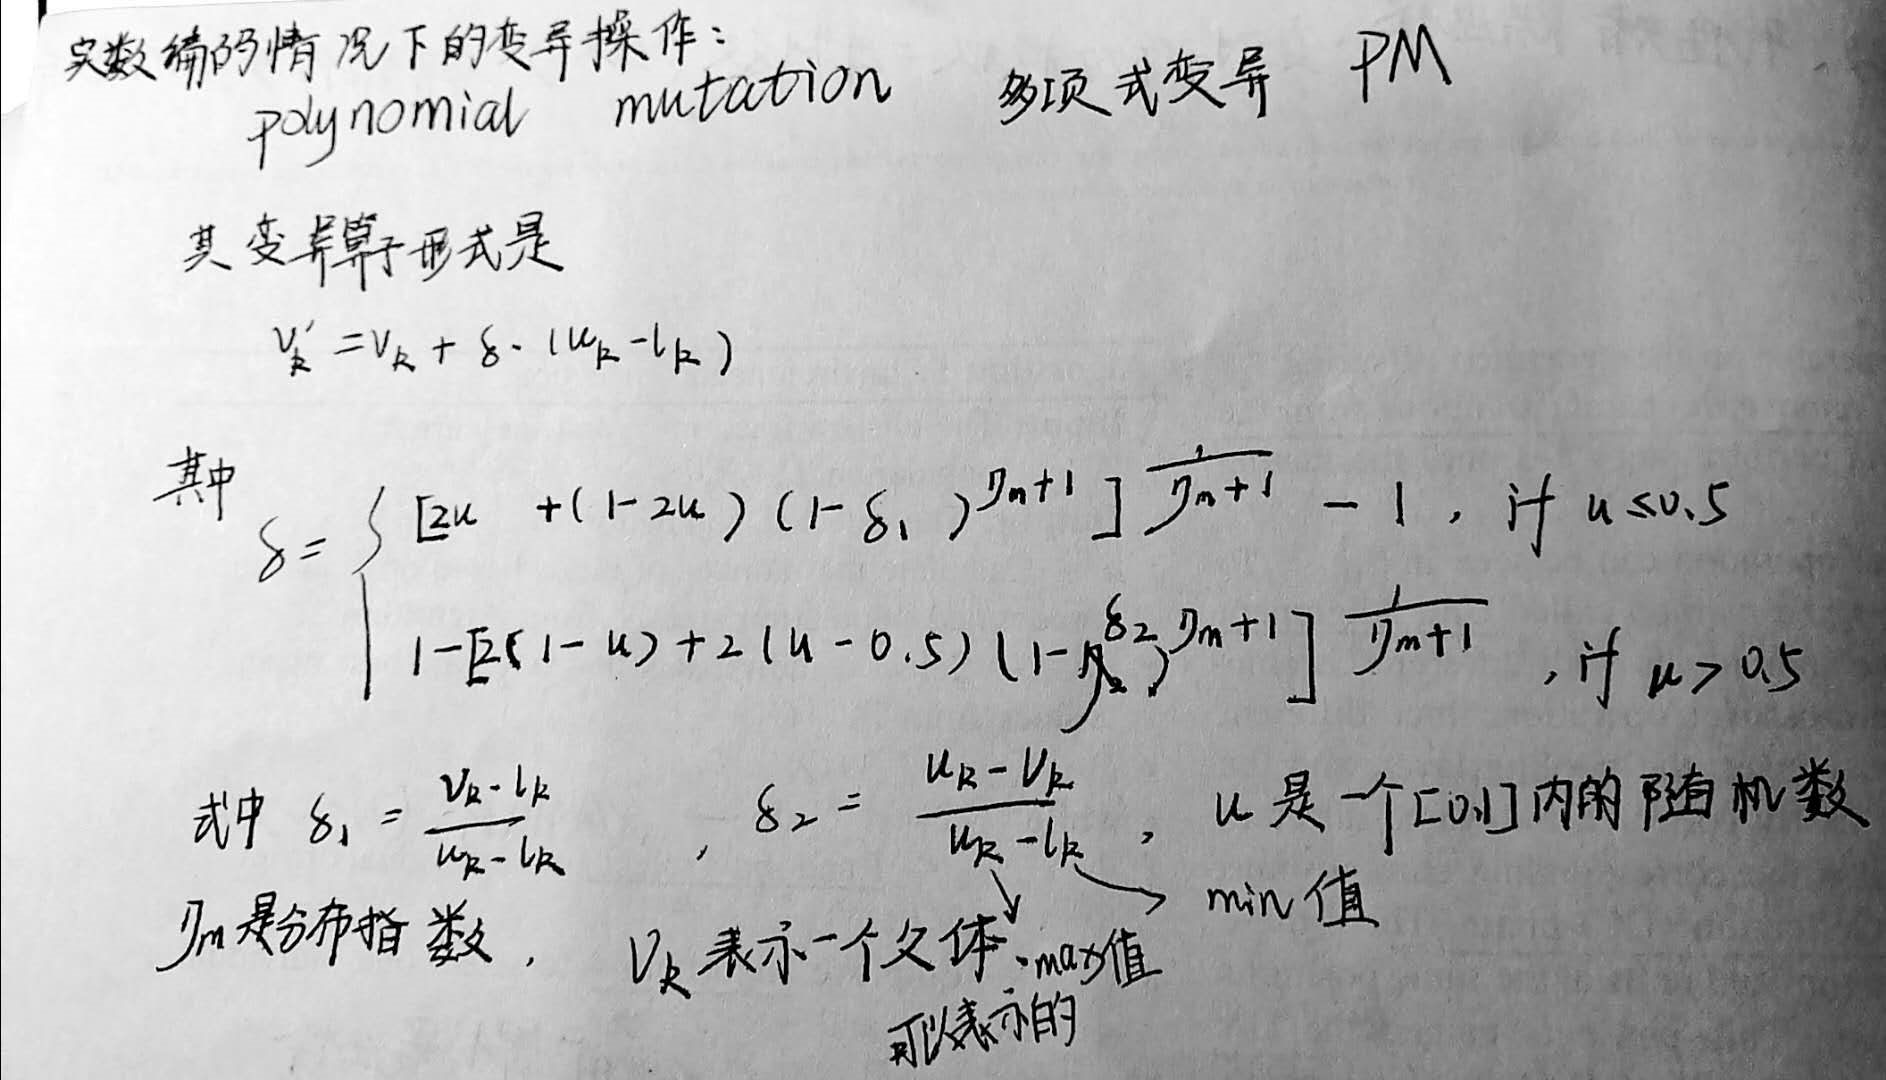 实数编码情况下的变异操作：
polynomial mutation 多项式变异 PM
其变异算子形式是
v'ₖ = vₖ + δ · (uₖ - lₖ)
其中
δ = { [2u + (1-2u)(1-δ₁)^(ηm+1)]^(1/(ηm+1)) - 1, if u ≤ 0.5
1 - [2(1-u) + 2(u-0.5)(1-δ₂)^(ηm+1)]^(1/(ηm+1)), if u > 0.5
式中 δ₁ = (vₖ - lₖ)/(uₖ - lₖ), δ₂ = (uₖ - vₖ)/(uₖ - lₖ), u 是一个[0,1]内的随机数
→ min 值
ηm 是分布指数, vₖ 表示一个父体、max值
可以表示的